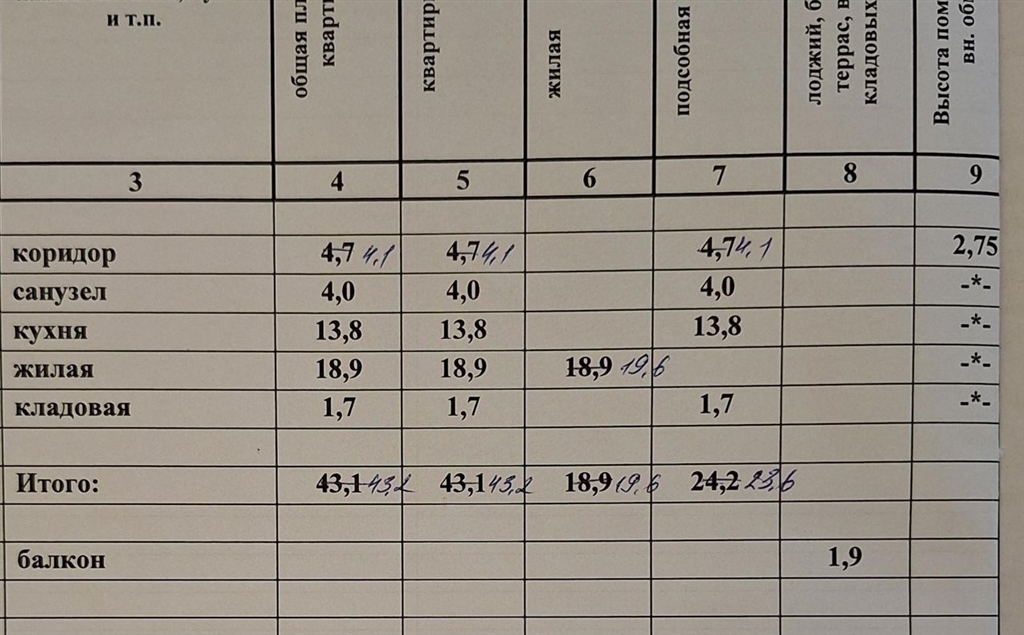 и т.п.
общая пл
кварти
квартир
жилая
подсобная
лоджий, б
террас, в
кладовых
Высота пом
вн. об
3 4 5 6 7 8 9
коридор 4,7 4,1 4,7 4,1 4,7 4,1 2,75
санузел 4,0 4,0 4,0 -*-
кухня 13,8 13,8 13,8 -*-
жилая 18,9 18,9 18,9 19,6 -*-
кладовая 1,7 1,7 1,7 -*-
Итого: 43,1 43,2 43,1 43,2 18,9 19,6 24,2 23,6
балкон 1,9